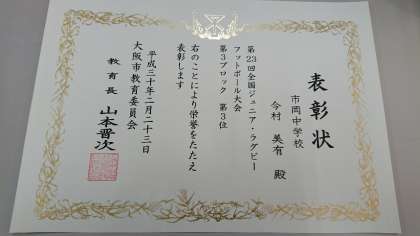 表彰状
市岡中学校
今村 美有 殿
第23回全国ジュニア・ラグビー
フットボール大会
第3ブロック 第3位
右のことにより栄誉をたたえ
表彰します
平成三十年二月二十三日
大阪市教育委員会
教育長 山本晋次